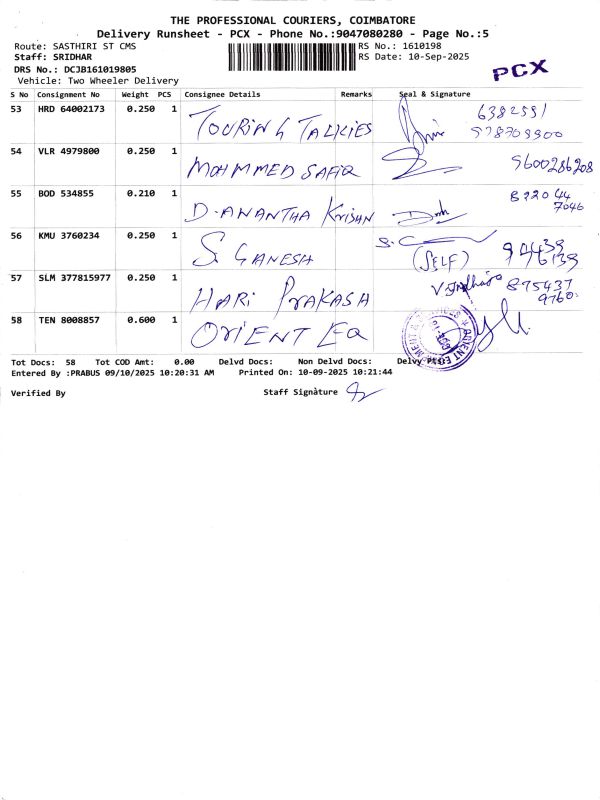 THE PROFESSIONAL COURIERS, COIMBATORE
Delivery Runsheet - PCX - Phone No.:9047080280 - Page No.:5
Route: SASTHIRI ST CMS RS No.: 1610198
Staff: SRIDHAR RS Date: 10-Sep-2025
PCX
DRS No.: DCJB161019805
Vehicle: Two Wheeler Delivery
S No Consignment No Weight PCS Consignee Details Remarks Seal & Signature
53 HRD 64002173 0.250 1 TOURING TALKIES 6382591
978709900
54 VLR 4979800 0.250 1 MOHAMMED SAFIQ 9600286208
55 BOD 534855 0.210 1 D. ANANTHA KRISHN 892044
7046
56 KMU 3760234 0.250 1 S. GANESH (SELF) 94439
46139
57 SLM 377815977 0.250 1 HARI PRAKASH 875437
9760
58 TEN 8008857 0.600 1 ORIENT EQ
Tot Docs: 58 Tot COD Amt: 0.00 Delvd Docs: Non Delvd Docs: Delvy
Entered By :PRABUS 09/10/2025 10:20:31 AM Printed On: 10-09-2025 10:21:44
Verified By Staff Signature